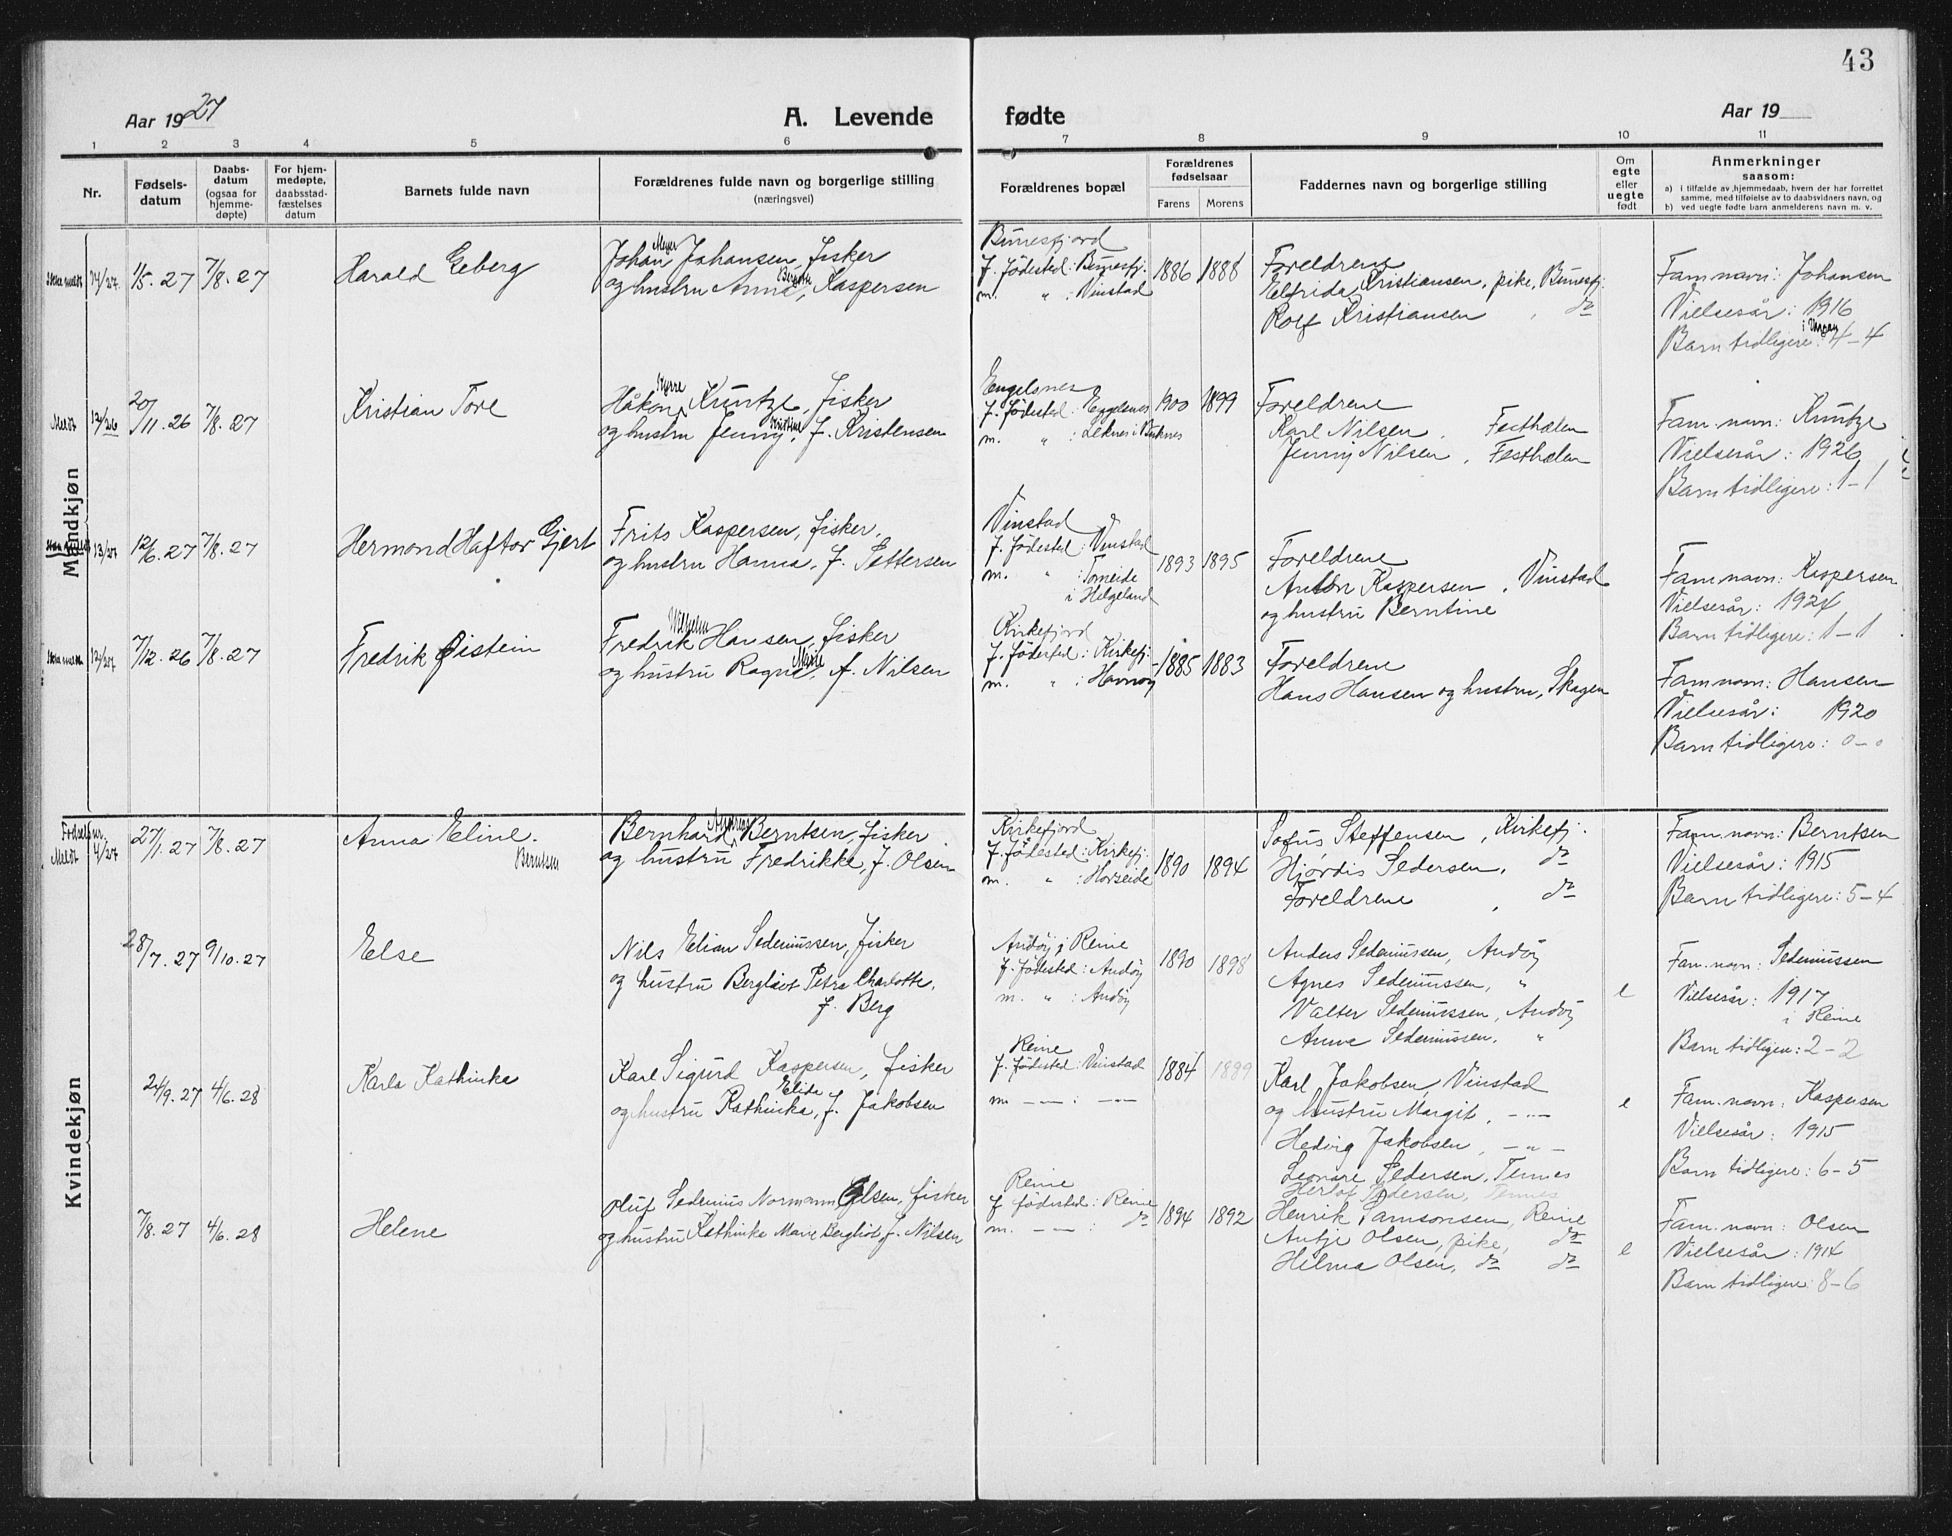 43
Aar 1927
A. Levende fødte
Aar 19
1 2 3 4 5 6 7 8 9 10 11
Nr.
Fødsels-
datum
Daabs-
datum
(ogsaa for
hjemme-
døpte)
For hjem-
medøpte,
daabsstad-
fæstelses
datum
Barnets fulde navn
Forældrenes fulde navn og borgerlige stilling
(næringsvei)
Forældrenes bopæl
Forældrenes
fødselsaar
Farens Morens
Faddernes navn og borgerlige stilling
Om
egte
eller
uegte
født
Anmerkninger
saasom:
a) i tilfælde av hjemmedaab, hvem der har forrettet
samme, med tilføielse av to daabsvidners navn, og
b) ved uegte fødte barn anmelderens navn m. v.
Mandkjøn
14/27.
1/5. 27
7/8. 27
Harald Eeberg
Meyer
Johan Johansen, fisker
og hustru Anna, Kaspersen
Bunesfjord
F. fødested: Bunesfj.
m. " : Vinstad
1886
1888
Foreldrene
Elfrida Kristiansen, pike, Bunesfj.
Rolf Kristiansen , do
Fam navn: Johansen
Vielsesår: 1916
Barn tidligere: 4-4
Meldt
12/26
20/11. 26
7/8. 27
Kristian Tore
Kyrre
Håkon Kuntze, fisker
Kristine
og hustru Jenny, f. Kristensen
Engelsnes
F. fødested: Engelsnes
m. " : Leknes i Buksnes
1900
1899
Foreldrene
Karl Nilsen , Festhælen
Jenny Nilsen , Festhælen
Fam. navn: Kuntze
Vielsesår: 1926
Barn tidligere: 1-1
13/27
12/6. 27
7/8. 27
Hermond Haftor Gjert
Frits Kaspersen, fisker,
og hustru Hanna, f. Pettersen
Vinstad
F. fødested: Vinstad
m. " : Tomeide
i Helgeland
1893
1895
Foreldrene
Anton Kaspersen , Vinstad
og hustru Berntine
Fam navn: Kaspersen
Vielsesår: 1924
Barn tidligere: 1-1
12/27
7/12. 26
7/8. 27
Fredrik Øistein
Wilhelm
Fredrik Hansen, fisker
Marie
og hustru Ragna, f. Nilsen
Kirkefjord
F. fødested: Kirkefj.
m. " : Havnøy
1885
1883
Foreldrene
Hans Hansen og hustru, Skagen
Fam navn: Hansen
Vielsesår: 1920
Barn tidligere: 0-0
Kvindekjøn
Fødsels nr.
4/27
Meldt
27/1. 27
7/8. 27
Anna Eline.
Berntsen
Andreas
Bernhard Berntsen, fisker
og hustru Fredrikke, f. Olsen
Kirkefjord
F. fødested: Kirkefj.
m. " : Horseide
1890
1894
Sofus Steffensen , Kirkefj.
Hjørdis Pedersen, do
Foreldrene , do
Fam. navn: Berntsen
Vielsesår: 1915
Barn tidligere: 5-4
28/7. 27
9/10. 27
Else
Nils Elian Sedeniussen, fisker
og hustru Bergløt Petra Charlotte,
f. Berg
Andøy i Reine
f. fødested: Andøy
m. " : Andøy
1890
1898
Anders Sedeniussen, Andøy
Agnes Sedeniussen, "
Valter Sedeniussen, Andøy
Anne Sedeniussen, "
e
Fam. navn: Sedeniussen
Vielsesår: 1917
i Reine
Barn tidligere: 2-2
24/9. 27
4/6. 28
Karla Kathinka
Karl Sigurd Kaspersen, fisker
Elida
og hustru Kathinka, f. Jakobsen
Reine
F. fødested: Vinstad
m. -"- : -"-
1884
1889
Karl Jakobsen, Vinstad
og hustru Margit, -"-
Hedvig Jakobsen, -"-
Leonare Pedersen, Tennes
Herlof Pedersen, Tennes
e
Fam. navn: Kaspersen
Vielsesår: 1915
Barn tidligere: 6-5
7/8. 27
4/6. 28
Helene
Oluf Sedenius Normann Olsen, fisker
og hustru Kathinka Marie Berghot f. Nilsen
Reine
f. fødested: Reine
m. -"- : do
1894
1892
Henrik Samsonsen, Reine
Antje Olsen, pike, do
Hilma Olsen, do do
e
Fam. navn: Olsen
Vielsesår: 1914
Barn tidligere: 8-6